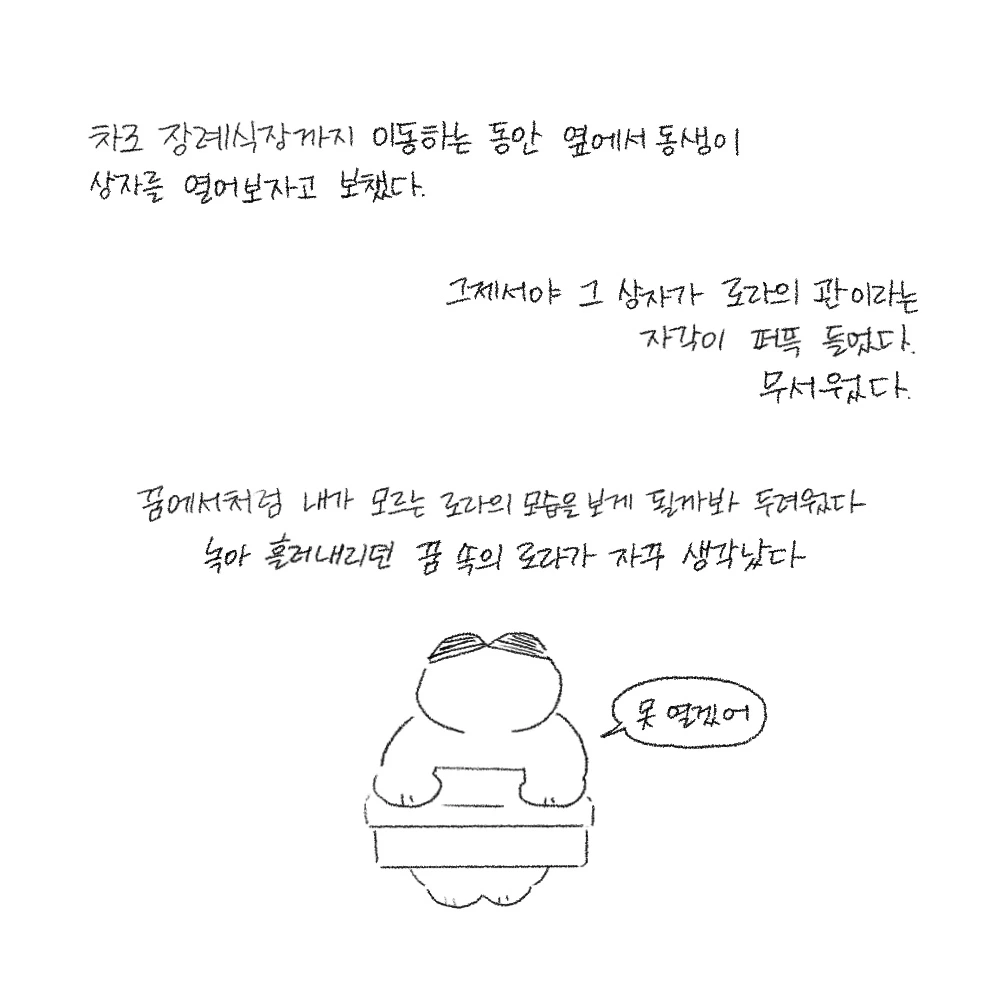 차로 장례식장까지 이동하는 동안 옆에서 동생이
상자를 열어보자고 보챘다.
그제서야 그 상자가 로라의 관이라는
자각이 퍼뜩 들었다.
무서웠다.
꿈에서처럼 내가 모르는 로라의 모습을 보게 될까봐 두려웠다
녹아 흘러내리던 꿈 속의 로라가 자꾸 생각났다
못 열겠어